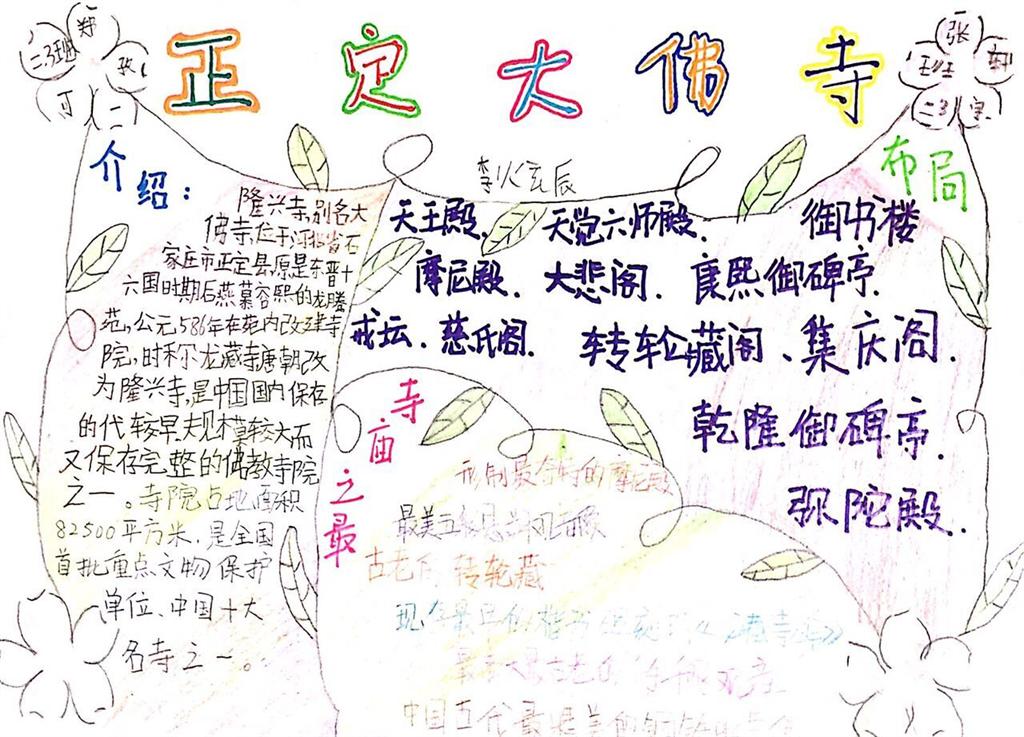 正定大佛寺
二3班
郑
李火玄辰
张
轩
二3
介绍：
隆兴寺，别名大
佛寺，位于河北省石
家庄市正定县，原是东晋十
六国时期后燕慕容熙的龙腾
苑，公元586年在苑内改建寺
院，时称龙藏寺唐朝改
为隆兴寺，是中国国内保存
的代较早、规模较大而
又保存完整的佛教寺院
之一。寺院占地面积
82500平方米，是全国
首批重点文物保护
单位、中国十大
名寺之一。
布局
天王殿、天觉六师殿、御书楼
摩尼殿、大悲阁、康熙御碑亭、
戒坛、慈氏阁、转轮藏阁、集庆阁、
乾隆御碑亭、
弥陀殿、
寺庙之最
形制最奇特的摩尼殿
最美
古老的转轮藏
现存最早的楷书
中国古代最